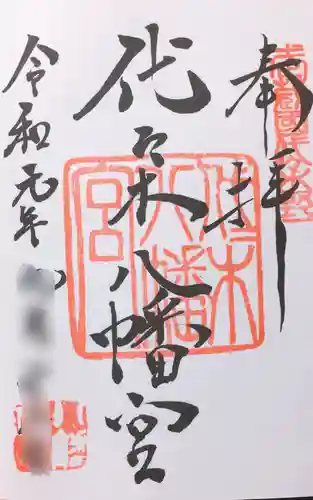 奉拝
代々木八幡宮
令和元年
代々木
八幡
宮